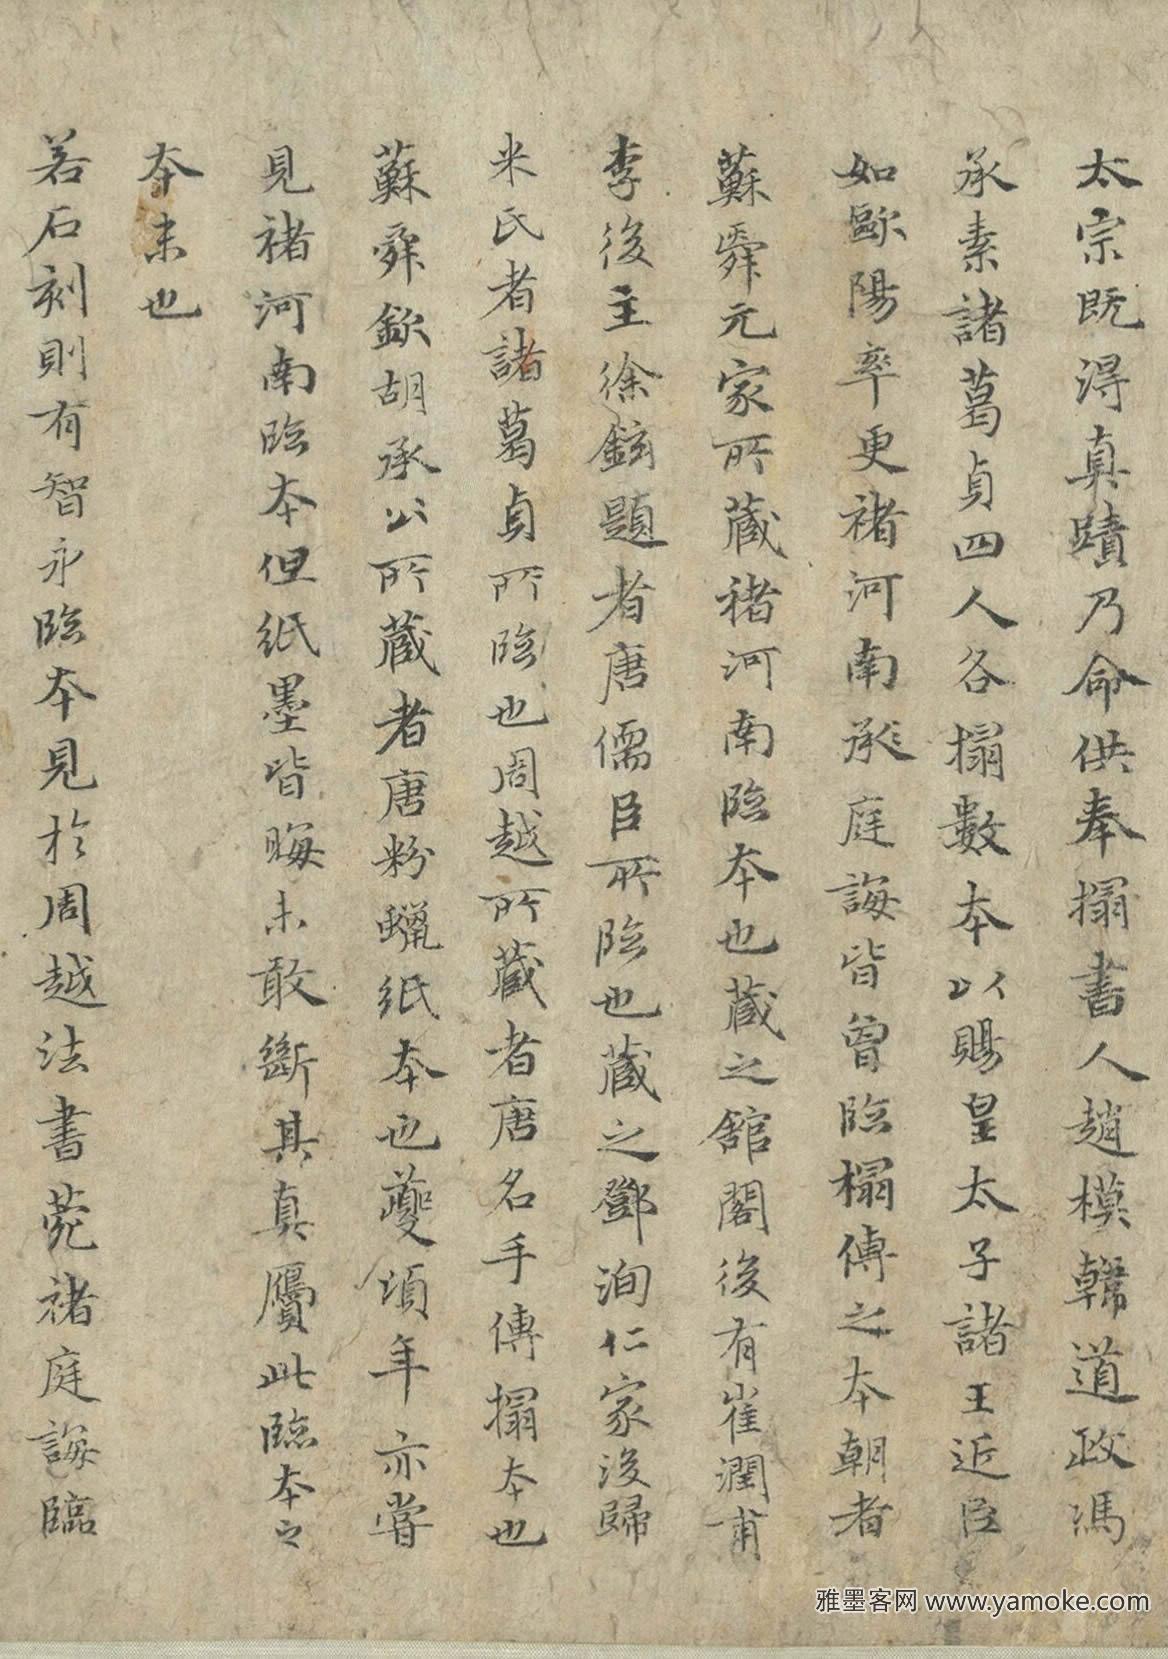 太宗既得真蹟乃命供奉搨書人趙模韓道政馮
承素諸葛貞四人各搨數本以賜皇太子諸王近臣
如歐陽率更褚河南承庭誨皆曾臨搨傳之本朝者
蘇舜元家所藏褚河南臨本也藏之舘閣後有崔潤甫
李後主徐鉉題者唐儒臣所臨也藏之鄧洵仁家後歸
米氏者諸葛貞所臨也周越所藏者唐名手傳搨本也
蘇舜欽胡承公所藏者唐粉蠟紙本也夔頃年亦嘗
見褚河南臨本但紙墨皆晦未敢斷其真贗此臨本之
本末也
若石刻則有智永臨本見於周越法書菀褚庭誨臨
雅墨客网 www.yamoke.com